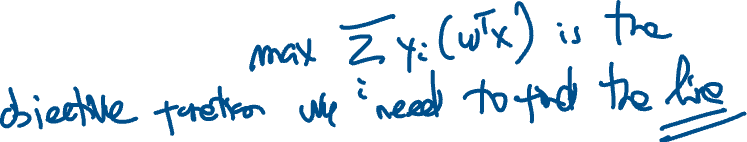 max Σ yᵢ(wᵀx) is the
objective function we need to find the line